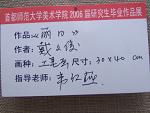 首都师范大学美术学院2006届研究生毕业作品展
作品《丽日》
作者：戴
画种：工笔 尺寸：30×40cm
指导老师：韦红燕